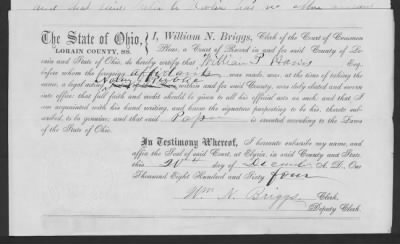 The State of Ohio,
LORAIN COUNTY, SS.
I, William N. Briggs, Clerk of the Court of Common
Pleas, a Court of Record in and for said County of Lo-
rain and State of Ohio, do hereby certify that William P. Esq.
before whom the foregoing affidavit was made, was, at the time of taking the
same, a legal acting Notary Public within and for said County, was duly elected and sworn
into office: that full faith and credit should be given to all his official acts as such; and that I
am acquainted with his hand writing, and know the signature purporting to be his, thereto sub-
scribed, to be genuine; and that said is executed according to the Laws
of the State of Ohio.
In Testimony Whereof, I hereunto subscribe my name, and
affix the Seal of said Court, at Elyria, in said County and State,
this day of A. D. One
Thousand Eight Hundred and Sixty four
Wm N. Briggs Clerk.
Deputy Clerk.